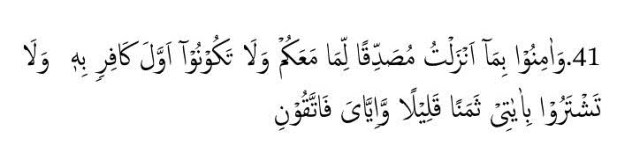 41.وَاٰمِنُوْا بِمَآ اَنْزَلْتُ مُصَدِّقًا لِّمَا مَعَكُمْ وَلَا تَكُوْنُوْٓا اَوَّلَ كَافِرٍۢ بِهٖ وَلَا
تَشْتَرُوْا بِاٰيٰتِيْ ثَمَنًا قَلِيْلًا وَّاِيَّايَ فَاتَّقُوْنِ